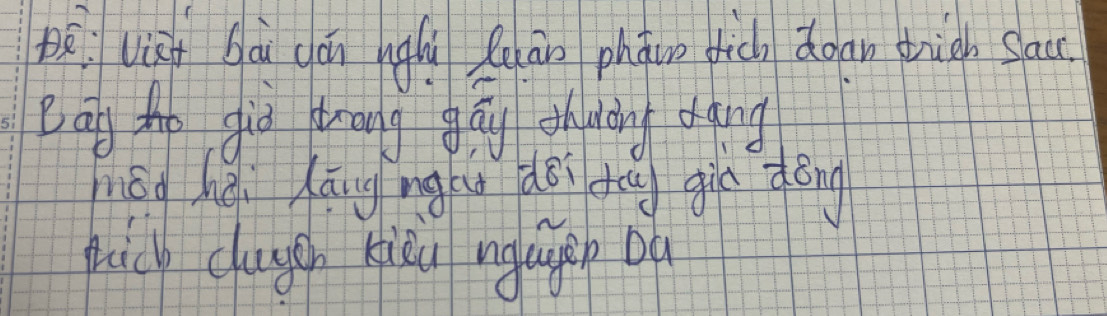 Đề: Viết bài văn nghị luận phân tích đoạn trích sau.
Bây giờ trong gãy thương tang
một hơi lặng ngat đôi tay giá đông
trích chuyện kiều nguyễn Du